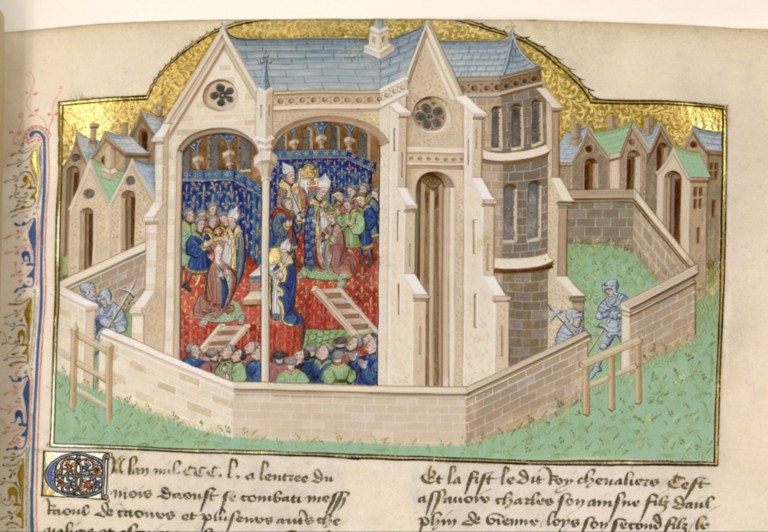 En lan mil. CCC. l. a lentree du
mois daoust se combati mess
Raoul de caours et plusieurs aut's che
Et la fist le dit Roy chevaliers Cest
assavoir charles son ainsne filz daul
phin de vienne, loys son second filz le